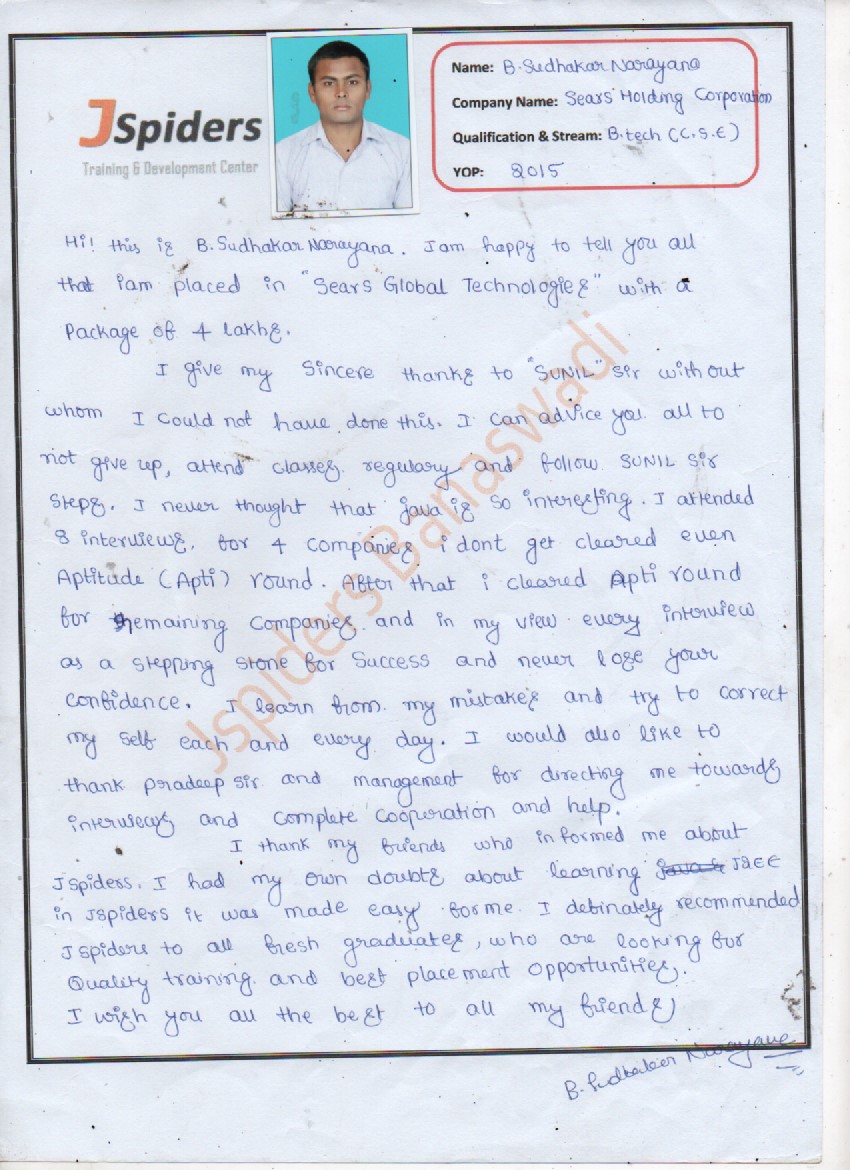 JSpiders
Training & Development Center
Name: B.Sudhakar Narayana
Company Name: Sears Holding Corporation
Qualification & Stream: B.tech (C.S.E)
YOP: 2015
Hi! this is B.Sudhakar Narayana. I am happy to tell you all
that iam placed in "Sears Global Technologies" with a
package of 4 lakhs.
I give my sincere thanks to "SUNIL" sir with out
whom I could not have done this. I can advice you all to
not give up, attend classes regulary and follow SUNIL sir
steps. I never thought that java is so interesting. I attended
8 interviews, for 4 companies i dont get cleared even
Aptitude (Apti) round. After that i cleared Apti round
for remaining companies and in my view every interview
as a stepping stone for success and never lose your
confidence. I learn from my mistakes and try to correct
my self each and every day. I would also like to
thank pradeep sir and management for directing me towards
interviews and complete cooperation and help.
I thank my friends who informed me about
Jspiders. I had my own doubts about learning J2EE
in Jspiders it was made easy for me. I definately recommended
Jspiders to all fresh graduates, who are looking for
Quality training and best placement opportunities.
I wish you all the best to all my friends
B.Sudhakar Narayana
Jspiders Banaswadi